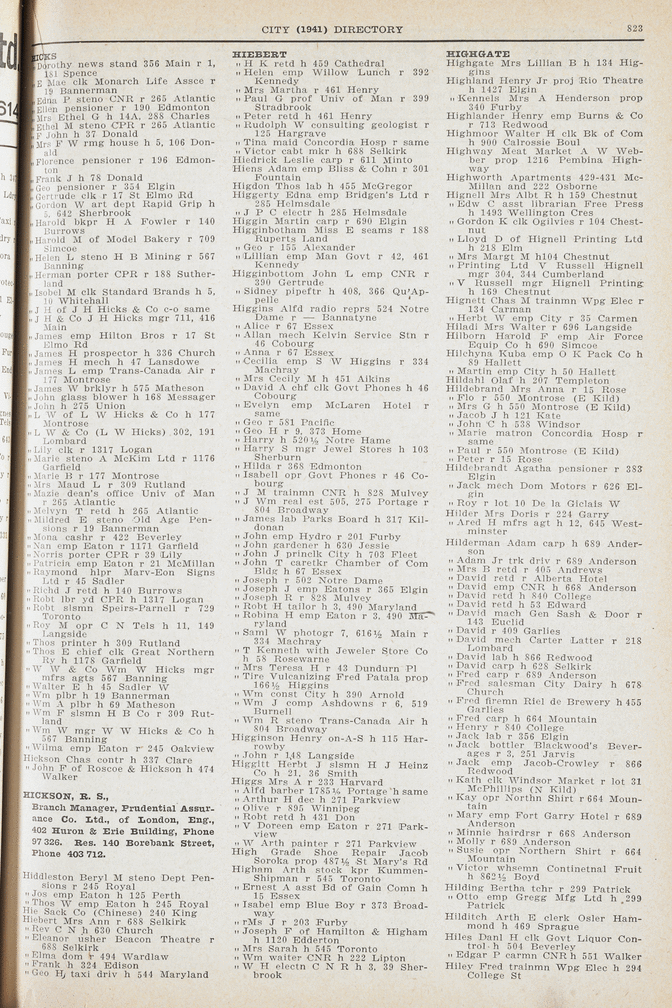 CITY (1941) DIRECTORY 823
HICKS
" Dorothy news stand 356 Main r 1,
181 Spence
" E Mae clk Monarch Life Assce r
19 Bannerman
" Edna P steno CNR r 265 Atlantic
" Ellen pensioner r 190 Edmonton
" Mrs Ethel G h 14A, 288 Charles
" Ethel M steno CPR r 265 Atlantic
" F John h 37 Donald
" Mrs F W rmg house h 5, 106 Don-
ald
" Florence pensioner r 196 Edmon-
ton
" Frank J h 78 Donald
" Geo pensioner r 354 Elgin
" Gertrude clk r 17 St Elmo Rd
" Gordon W art dept Rapid Grip h
5, 642 Sherbrook
" Harold bkpr H A Fowler r 140
Burrows
" Harold M of Model Bakery r 709
Simcoe
" Helen L steno H B Mining r 567
Banning
" Herman porter CPR r 188 Suther-
land
" Isobel M clk Standard Brands h 5,
10 Whitehall
" J H of J H Hicks & Co c-o same
" J H & Co J H Hicks mgr 711, 416
Main
" James emp Hilton Bros r 17 St
Elmo Rd
" James H prospector h 336 Church
" James H mech h 47 Lansdowe
" James L emp Trans-Canada Air r
177 Montrose
" James W brklyr h 575 Matheson
" John glass blower h 168 Messager
" John h 275 Union
" L W of L W Hicks & Co h 177
Montrose
" L W & Co (L W Hicks) 302, 191
Lombard
" Lily clk r 1317 Logan
" Marie steno A McKim Ltd r 1176
Garfield
" Marie B r 177 Montrose
" Mrs Maud L r 309 Rutland
" Mazie dean's office Univ of Man
r 265 Atlantic
" Melvyn T retd h 265 Atlantic
" Mildred E steno Old Age Pen-
sions r 19 Bannerman
" Mona cashr r 422 Beverley
" Nan emp Eaton r 1171 Garfield
" Norris porter CPR r 39 Lily
" Patricia emp Eaton r 21 McMillan
" Raymond hlpr Marv-Eon Signs
Ltd r 45 Sadler
" Richd J retd h 140 Burrows
" Robt lbr yd CPR h 1317 Logan
" Robt slsmn Speirs-Parnell r 729
Toronto
" Roy M opr C N Tels h 11, 149
Langside
" Thos printer h 309 Rutland
" Thos E chief clk Great Northern
Ry h 1178 Garfield
" W W & Co Wm W Hicks mgr
mfrs agts 567 Banning
" Walter E h 45 Sadler W
" Wm plbr h 19 Bannerman
" Wm A plbr h 69 Matheson
" Wm F slsmn H B Co r 309 Rut-
land
" Wm W mgr W W Hicks & Co h
567 Banning
" Wilma emp Eaton r 245 Oakview
Hickson Chas contr h 337 Clare
" John F of Roscoe & Hickson h 474
Walker
HICKSON, R. S.,
Branch Manager, Prudential Assur-
ance Co. Ltd., of London, Eng.,
402 Huron & Erie Building, Phone
97 326. Res. 140 Borebank Street,
Phone 403 712.
Hiddleston Beryl M steno Dept Pen-
sions r 245 Royal
" Jos emp Eaton h 125 Perth
" Thos W emp Eaton h 245 Royal
Hie Sack Co (Chinese) 240 King
Hiebert Mrs Ann r 688 Selkirk
" Rev C N h 630 Church
" Eleanor usher Beacon Theatre r
688 Selkirk
" Elma dom r 494 Wardlaw
" Frank h 324 Edison
" Geo H taxi driv h 544 Maryland
HIEBERT
" H K retd h 459 Cathedral
" Helen emp Willow Lunch r 392
Kennedy
" Mrs Martha r 461 Henry
" Paul G prof Univ of Man r 399
Stradbrook
" Peter retd h 461 Henry
" Rudolph W consulting geologist r
125 Hargrave
" Tina maid Concordia Hosp r same
" Victor cabt mkr h 688 Selkirk
Hiedrick Leslie carp r 611 Minto
Hiens Adam emp Bliss & Cohn r 301
Fountain
Higdon Thos lab h 455 McGregor
Higgerty Edna emp Bridgen's Ltd r
285 Helmsdale
" J P C electr h 285 Helmsdale
Higgin Martin carp r 690 Elgin
Higginbotham Miss E seams r 188
Ruperts Land
" Geo r 155 Alexander
" Lillian emp Man Govt r 42, 461
Kennedy
Higginbottom John L emp CNR r
390 Gertrude
" Sidney pipeftr h 408, 366 Qu'Ap-
pelle
Higgins Alfd radio reprs 524 Notre
Dame r — Bannatyne
" Alice r 67 Essex
" Allan mech Kelvin Service Stn r
46 Cobourg
" Anna r 67 Essex
" Cecilia emp S W Higgins r 334
Machray
" Mrs Cecily M h 451 Aikins
" David A chf clk Govt Phones h 46
Cobourg
" Evelyn emp McLaren Hotel r
same
" Geo r 581 Pacific
" Geo H r 9, 373 Home
" Harry h 520½ Notre Hame
" Harry S mgr Jewel Stores h 103
Sherburn
" Hilda r 368 Edmonton
" Isabell opr Govt Phones r 46 Co-
bourg
" J M trainmn CNR h 828 Mulvey
" J Wm real est 505, 275 Portage r
804 Broadway
" James lab Parks Board h 317 Kil-
donan
" John emp Hydro r 201 Furby
" John gardner h 630 Jessie
" John J princlk City h 703 Fleet
" John T caretkr Chamber of Com
Bldc h 67 Essex
" Joseph r 502 Notre Dame
" Joseph J emp Eatons r 365 Elgin
" Joseph R r 828 Mulvey
" Robt H tailor h 3, 490 Maryland
" Robina H emp Eaton r 3, 490 Ma-
ryland
" Saml W photogr 7, 616½ Main r
334 Machray
" T Kenneth with Jeweler Store Co
h 58 Rosewarne
" Mrs Teresa H r 43 Dundurn Pl
" Tire Vulcanizing Fred Patala prop
166½ Higgins
" Wm const City h 390 Arnold
" Wm J comp Ashdowns r 6, 519
Burnell
" Wm R steno Trans-Canada Air h
804 Broadway
Higginson Henry on-A-S h 115 Har-
rowby
" John r 148 Langside
Higgitt Herbt J slsmn H J Heinz
Co h 21, 36 Smith
Higgs Mrs A r 233 Harvard
" Alfd barber 1785¼ Portage h same
" Arthur H dec h 271 Parkview
" Olive r 895 Winnipeg
" Robt retd h 431 Don
" V Doreen emp Eaton r 271 Park-
view
" W Arth painter r 271 Parkview
High Grade Shoe Repair Jacob
Soroka prop 487½ St Mary's Rd
Higham Arth stock kpr Kummen-
Shipman r 545 Toronto
" Ernest A asst Bd of Gain Comn h
15 Essex
" Isabel emp Blue Boy r 373 Broad-
way
" rMs J r 203 Furby
" Joseph F of Hamilton & Higham
h 1120 Edderton
" Mrs Sarah h 545 Toronto
" Wm waiter CNR h 222 Lipton
" W H electn C N R h 3, 39 Sher-
brook
HIGHGATE
Highgate Mrs Lillian B h 134 Hig-
gins
Highland Henry Jr proj Rio Theatre
h 1427 Elgin
" Kennels Mrs A Henderson prop
340 Furby
Highlander Henry emp Burns & Co
r 713 Redwood
Highmoor Walter H clk Bk of Com
h 900 Calrossie Boul
Highway Meat Market A W Web-
ber prop 1216 Pembina High-
way
Highworth Apartments 429-431 Mc-
Millan and 222 Osborne
Hignell Mrs Albt R h 159 Chestnut
" Edw C asst librarian Free Press
h 1493 Wellington Cres
" Gordon K clk Ogilvies r 104 Chest-
nut
" Lloyd D of Hignell Printing Ltd
h 218 Elm
" Mrs Margt M h104 Chestnut
" Printing Ltd V Russell Hignell
mgr 304, 344 Cumberland
" V Russell mgr Hignell Printing
h 169 Chestnut
Hignett Chas M trainmn Wpg Elec r
134 Carman
" Herbt W emp City r 35 Carmen
Hiladi Mrs Walter r 696 Langside
Hilborn Harold F emp Air Force
Equip Co h 690 Simcoe
Hilchyna Kuba emp O K Pack Co h
89 Hallett
" Martin emp City h 50 Hallett
Hildahl Olaf h 207 Templeton
Hildebrand Mrs Anna r 15 Rose
" Flo r 550 Montrose (E Kild)
" Mrs G h 550 Montrose (E Kild)
" Jacob J h 121 Kate
" John C h 538 Windsor
" Marie matron Concordia Hosp r
same
" Paul r 550 Montrose (E Kild)
" Peter r 15 Rose
Hildebrandt Agatha pensioner r 383
Elgin
" Jack mech Dom Motors r 626 El-
gin
" Roy r lot 10 De la Giclais W
Hilder Mrs Doris r 224 Garry
" Ared H mfrs agt h 12, 645 West-
minster
Hilderman Adam carp h 689 Ander-
son
" Adam Jr trk driv r 689 Anderson
" Mrs B retd r 405 Andrews
" David retd r Alberta Hotel
" David emp CNR h 668 Anderson
" David retd h 840 College
" David retd h 53 Edward
" David mach Gen Sash & Door r
143 Euclid
" David r 409 Garlies
" David mech Carter Latter r 218
Lombard
" David lab h 866 Redwood
" David carp h 628 Selkirk
" Fred carp r 689 Anderson
" Fred salesman City Dairy h 678
Church
" Fred firemn Riel de Brewery h 455
Garlies
" Fred carp h 664 Mountain
" Henry r 840 College
" Jack lab r 356 Elgin
" Jack bottler Blackwood's Bever-
ages r 3, 251 Jarvis
" Jack emp Jacob-Crowley r 866
Redwood
" Kath clk Windsor Market r lot 31
McPhillips (N Kild)
" Kay opr Northn Shirt r 664 Moun-
tain
" Mary emp Fort Garry Hotel r 689
Anderson
" Minnie hairdrsr r 668 Anderson
" Molly r 689 Anderson
" Susie opr Northern Shirt r 664
Mountain
" Victor whsemn Continetnal Fruit
h 862½ Boyd
Hilding Bertha tchr r 299 Patrick
" Otto emp Gregg Mfg Ltd h 299
Patrick
Hilditch Arth E clerk Osler Ham-
mond h 469 Sprague
Hiles Danl H clk Govt Liquor Con-
trol h 504 Beverley
" Edgar P carmn CNR h 551 Walker
Hiley Fred trainmn Wpg Elec h 294
College St